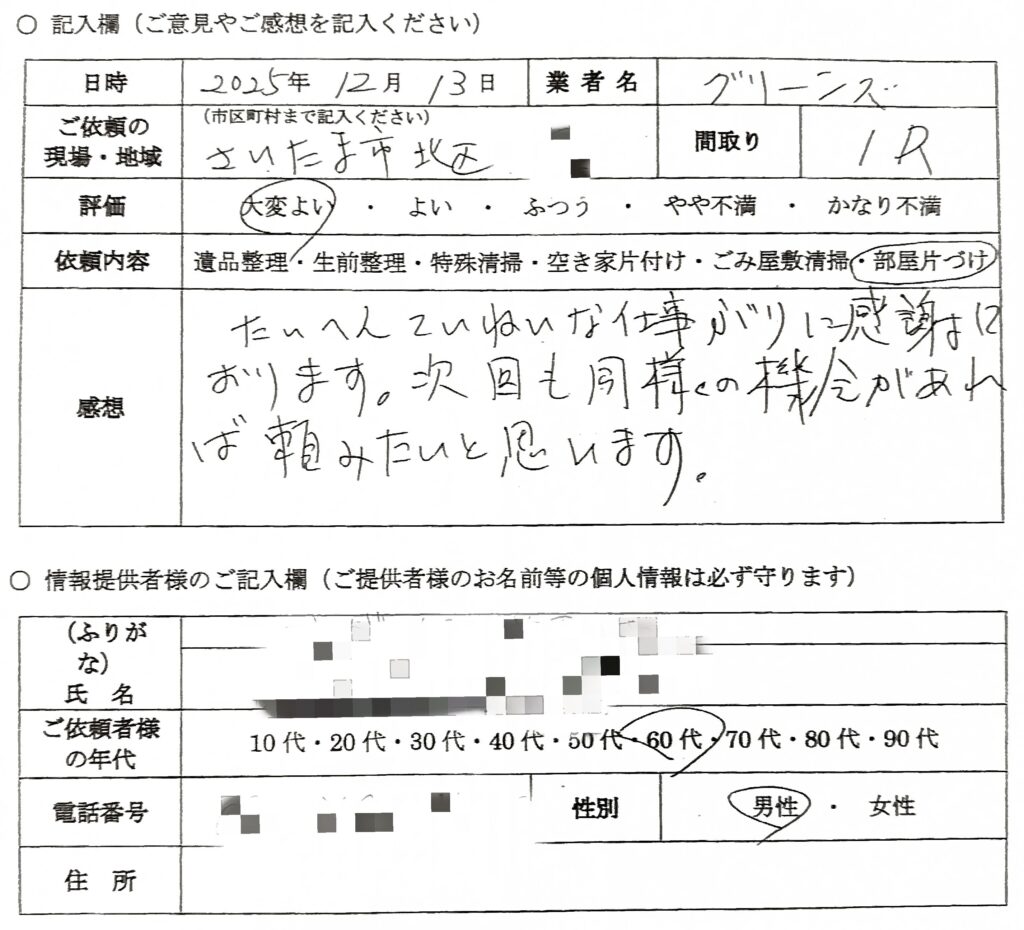 ○ 記入欄（ご意見やご感想を記入ください）
日時 2025年 12月 13日 業者名 グリーンズ
ご依頼の現場・地域 （市区町村まで記入ください） さいたま市北区 間取り 1R
評価 大変よい ・ よい ・ ふつう ・ やや不満 ・ かなり不満
依頼内容 遺品整理・生前整理・特殊清掃・空き家片付け・ごみ屋敷清掃・部屋片づけ
感想
たいへんていねいな仕事がりに感謝して
おります。次回も同様の機会があれ
ば頼みたいと思います。
○ 情報提供者様のご記入欄（ご提供者様のお名前等の個人情報は必ず守ります）
（ふりがな）
氏 名
ご依頼者様の年代 10代・20代・30代・40代・50代・60代・70代・80代・90代
電話番号 性別 男性 ・ 女性
住 所